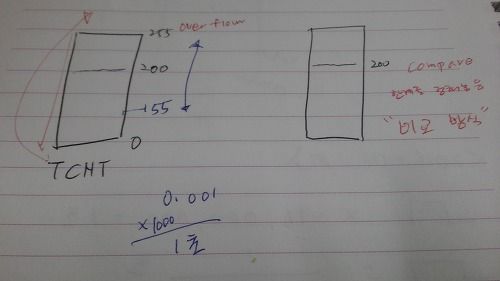 255 over flow
200
55
0
TCNT
200 compare
0.001
×1000
1초